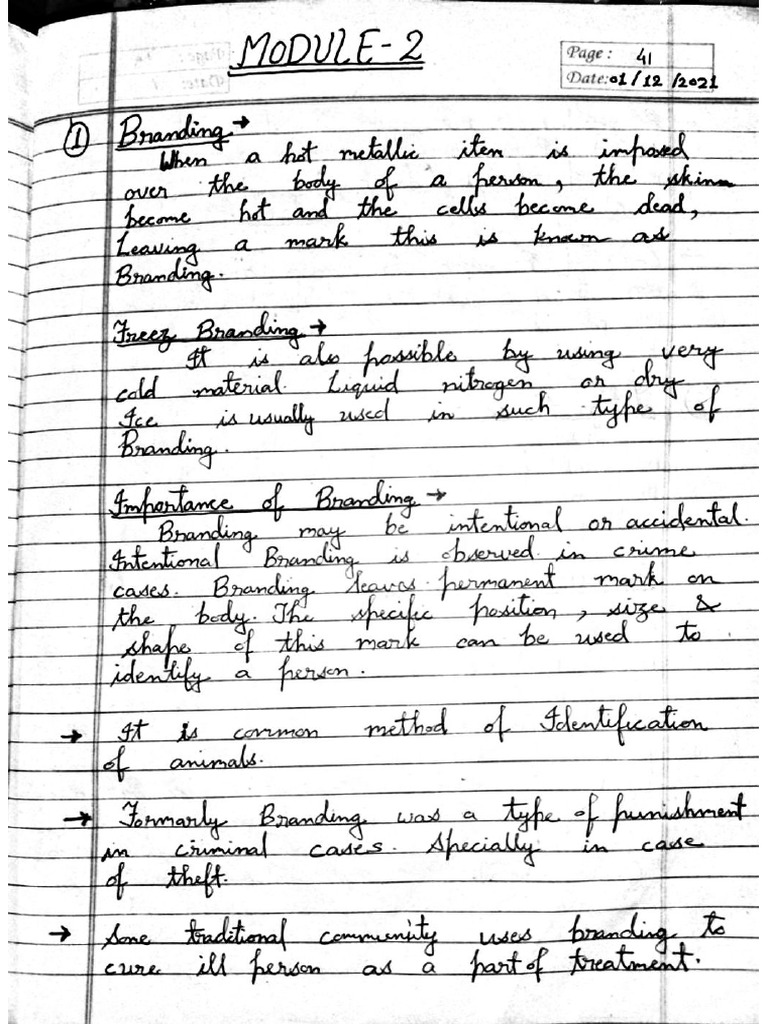 MODULE-2
Page: 41
Date: 01/12/2021
① Branding →
When a hot metallic item is imposed
over the body of a person, the skin
become hot and the cells become dead,
Leaving a mark this is known as
Branding.
Freez Branding →
It is also possible by using very
cold material. Liquid nitrogen or dry
Ice is usually used in such type of
Branding.
Importance of Branding →
Branding may be intentional or accidental.
Intentional Branding is observed in crime
cases. Branding leaves permanent mark on
the body. The specific position, size &
shape of this mark can be used to
identify a person.
→ It is common method of Identification
of animals.
→ Formarly Branding was a type of punishment
in criminal cases. Specially in case
of theft.
→ Some traditional community uses branding to
cure ill person as a part of treatment.